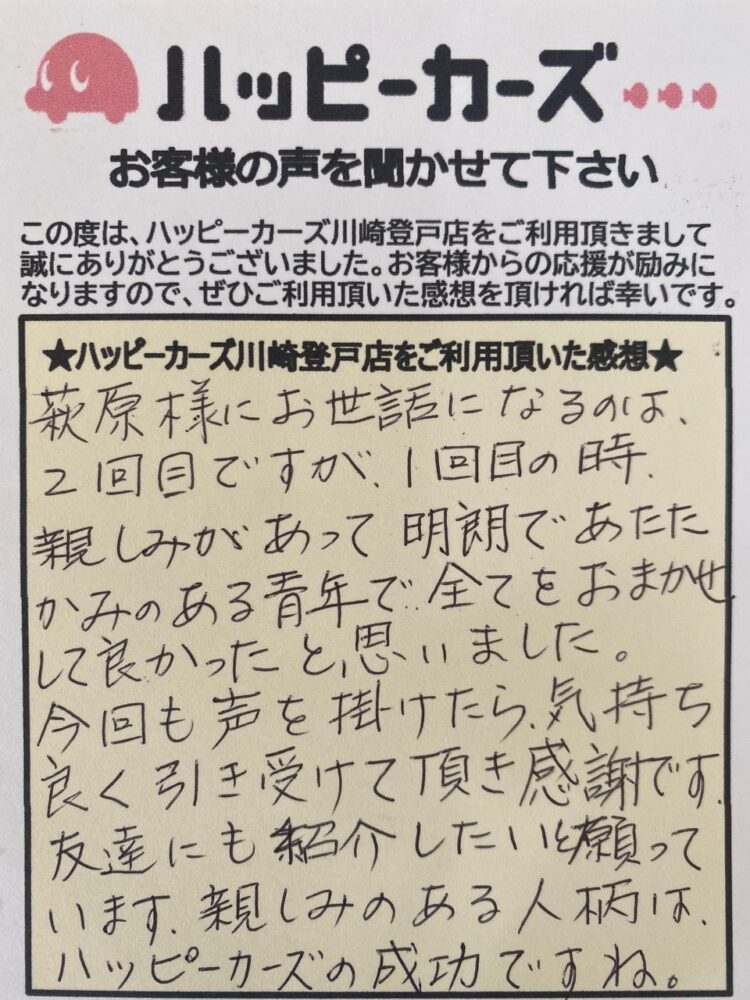 ハッピーカーズ
お客様の声を聞かせて下さい
この度は、ハッピーカーズ川崎登戸店をご利用頂きまして
誠にありがとうございました。お客様からの応援が励みに
なりますので、ぜひご利用頂いた感想を頂ければ幸いです。
★ハッピーカーズ川崎登戸店をご利用頂いた感想★
萩原様にお世話になるのは、
2回目ですが、1回目の時、
親しみがあって明朗であたた
かみのある青年で、全てをおまかせ
して良かったと思いました。
今回も声を掛けたら、気持ち
良く引き受けて頂き感謝です。
友達にも紹介したいと願って
います。親しみのある人柄は、
ハッピーカーズの成功ですね。